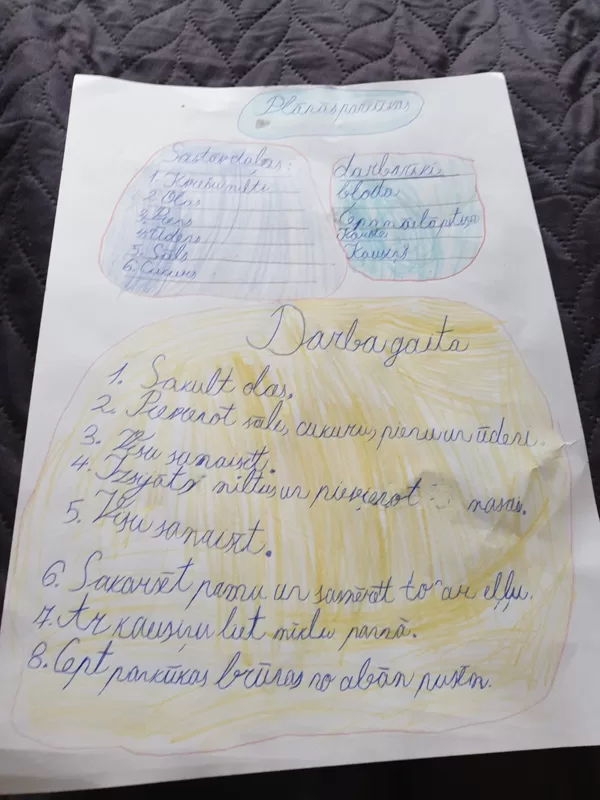 Plānāspankūkas
Sastāvdaļas:
1. Kviešu milti
2. Olas
3. Piens
4. Ūdens
5. Sāls
6. Cukurs
darbarīki
bloda
Cepamāilāptiņa
Karote
Kausiņš
Darba gaita
1. Sakult olas.
2. Pievienot sāli, cukuru, pienu un ūdeni.
3. Visu samaisīt.
4. Izsijāt miltus un pievienot masai.
5. Visu samaisīt.
6. Sakarsēt pannu un samērcēt to ar eļļu.
7. Ar kausiņu liet mīklu pannā.
8. Cept pankūkas brūnas no abām pusēm.